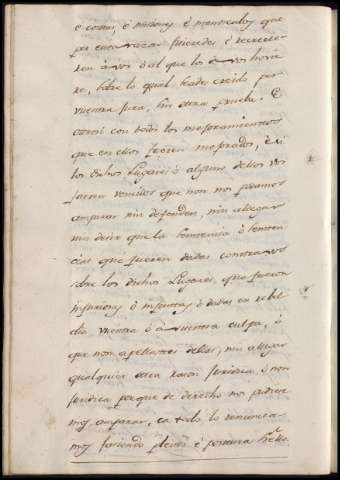 e costas, é missiones é menoscabos que
por esta razon ficierdes é recrecie-
ren á vos ó al que los á vos hovie-
re, sobre lo qual seades creido por
vuestra jura, sin otra prueba. E
otrosi con todos los mejoramientos
que en ellos fueren mejorados, é si
los dichos Lugares ó alguno dellos vos
fueren vencidos que non nos podamos
amparar nin defender, nin allegar
nin decir que la sentencia ó senten-
cias que fueren dadas contra vos
sobre los dichos Lugares, que fueron
injuriosas ó injustas é dadas en rebel
dia vuestra ó á vuestra culpa, ó
que non apellastes dellas, nin allegar
qualquier otra razon juridica, ó non
juridica porque de derecho nos pudiese-
mos amparar, ca todo lo renuncia-
mos faciendo pleito é postura